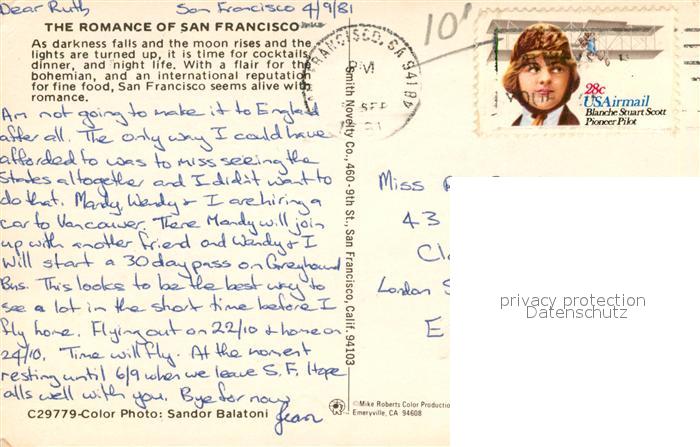 Dear Ruth San Francisco 4/9/81
THE ROMANCE OF SAN FRANCISCO
As darkness falls and the moon rises and the
lights are turned up, it is time for cocktails,
dinner, and night life. With a flair for the
bohemian, and an international reputation
for fine food, San Francisco seems alive with
romance.
Am not going to make it to England
after all. The only way I could have
afforded to was to miss seeing the
States altogether and I didn't want to
do that. Mandy, Wendy & I are hiring a
car to Vancouver. There Mandy will join
up with another friend and Wendy & I
will start a 30 day pass on Greyhound
Bus. This looks to be the best way to
see a lot in the short time before I
fly home. Flying out on 22/10 & home on
24/10. Time will fly. At the moment
resting until 6/9 when we leave S.F. Hope
alls well with you. Bye for now
Jean
C29779-Color Photo: Sandor Balatoni
Smith Novelty Co., 460-9th St., San Francisco, Calif. 94103
©Mike Roberts Color Productio
Emeryville, CA 94608
10'
FRANCISCO, CA 941
PM
SEP
28c
USAirmail
Blanche Stuart Scott
Pioneer Pilot
Miss
43
Cl
London S
E
privacy protection
Datenschutz